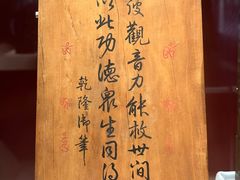 彼觀音力能救世間
以此功德眾生同得
乾隆御筆